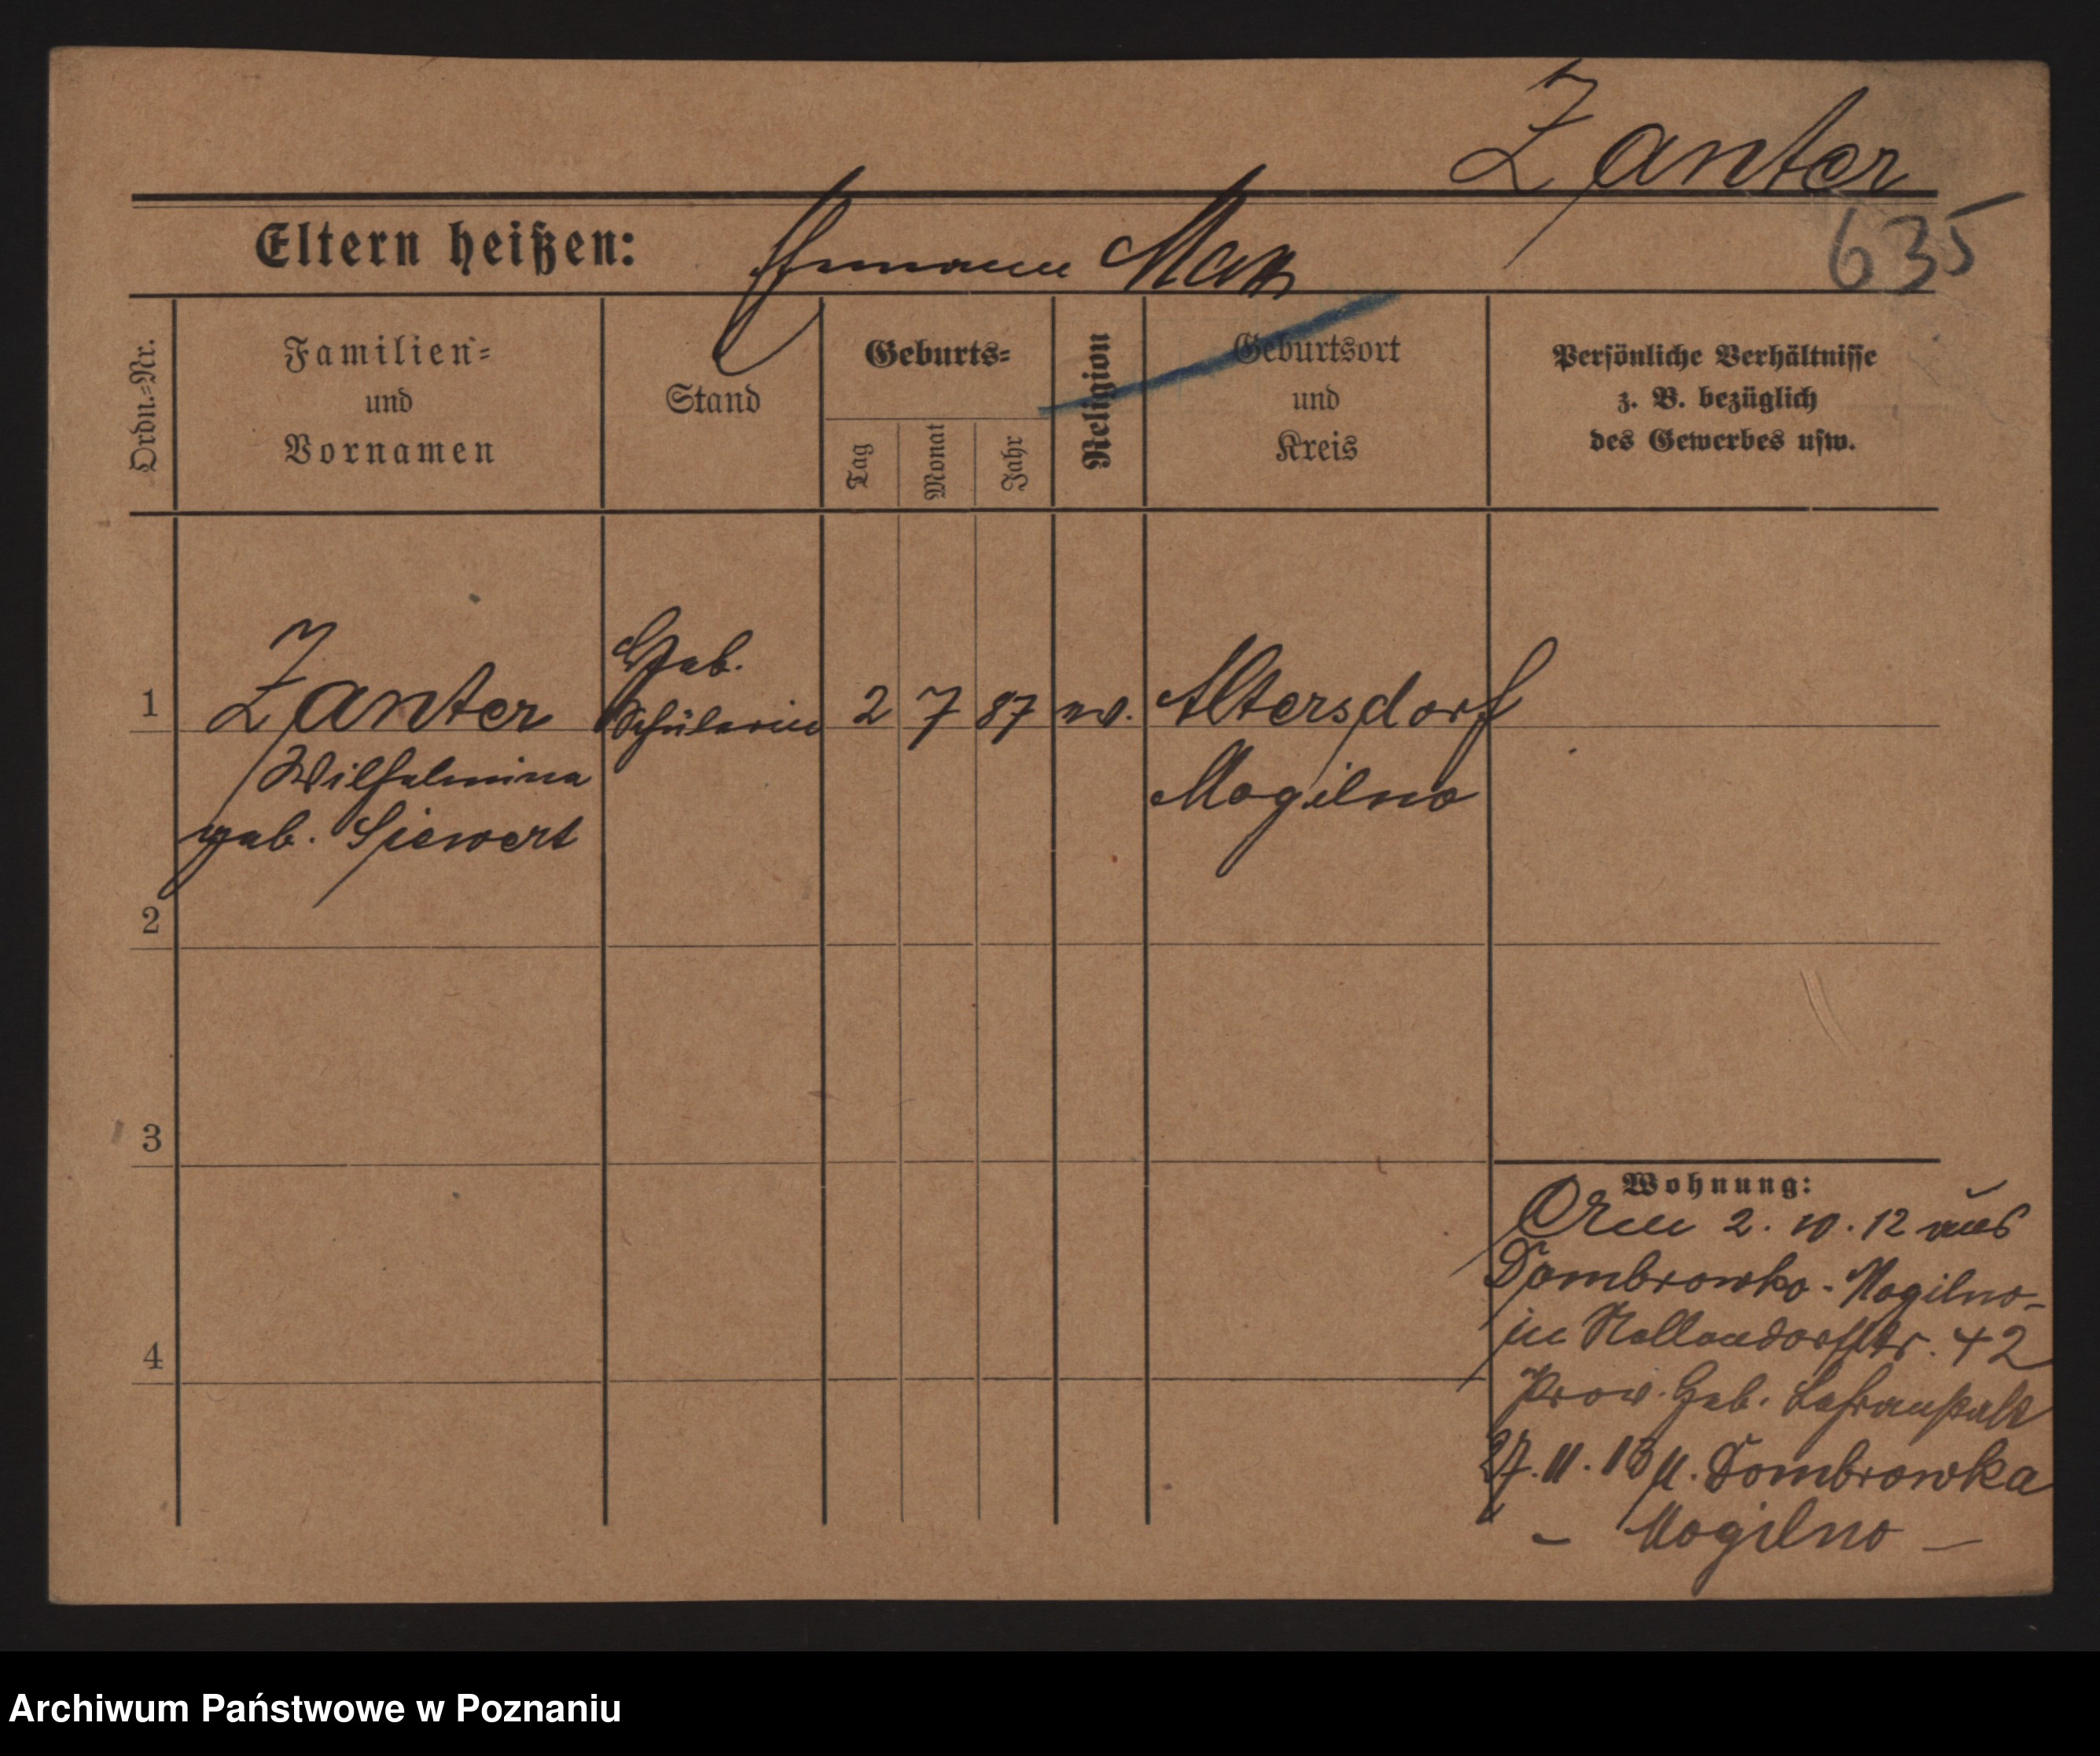 Zanter
635
Eltern heißen: Ehemann Max
Ordn.=Nr.
Familien=
und
Vornamen
Stand
Geburts=
Tag
Monat
Jahr
Religion
Geburtsort
und
Kreis
Persönliche Verhältnisse
z. B. bezüglich
des Gewerbes usw.
1
Zanter
Wilhelmina
geb. Siewert
Heb.
Schülerin
2 7 87 ev.
Altersdorf
Mogilno
2
3
4
Wohnung:
2. 10. 12 aus
Dombrowko - Mogilno -
in Nollendorfstr. 42
Prov. Heb. Lehranstalt
27. 11. 13 n. Dombrowka
- Mogilno -
Archiwum Państwowe w Poznaniu